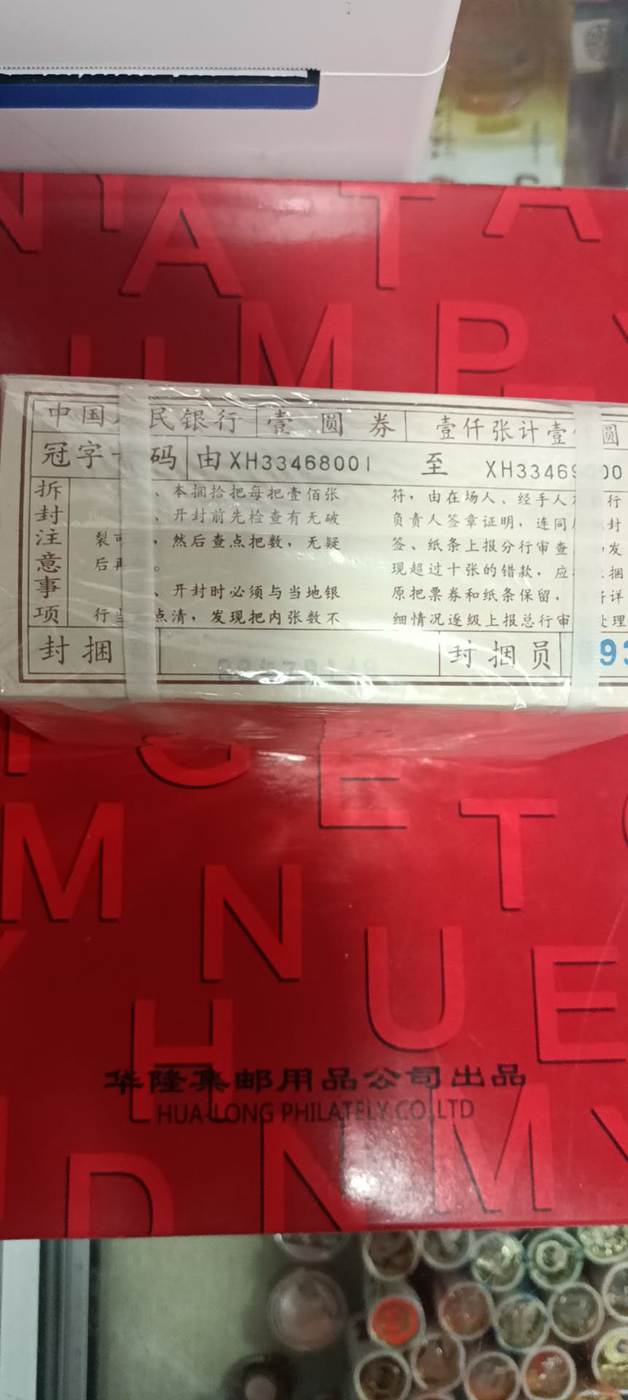 中国 民银行 壹圆券 壹仟张计壹 圆
冠字 码 由XH33468001 至 XH33469 00
拆封注意事项
、本捆拾把每把壹佰张
、开封前先检查有无破
裂 ，然后查点把数，无疑
后 。
、开封时必须与当地银
行 点清，发现把内张数不
符，由在场人、经手人 行
负责人签章证明，连同 封
签、纸条上报分行审查 ，发
现超过十张的错款，应 捆
原把票券和纸条保留， 详
细情况逐级上报总行审 处理
封捆 封捆员 93
N Y A T A
U M P Y
S E T
M N T
U E
H
华隆集邮用品公司出品
HUA-LONG PHILATELY CO.,LTD
D N M Y